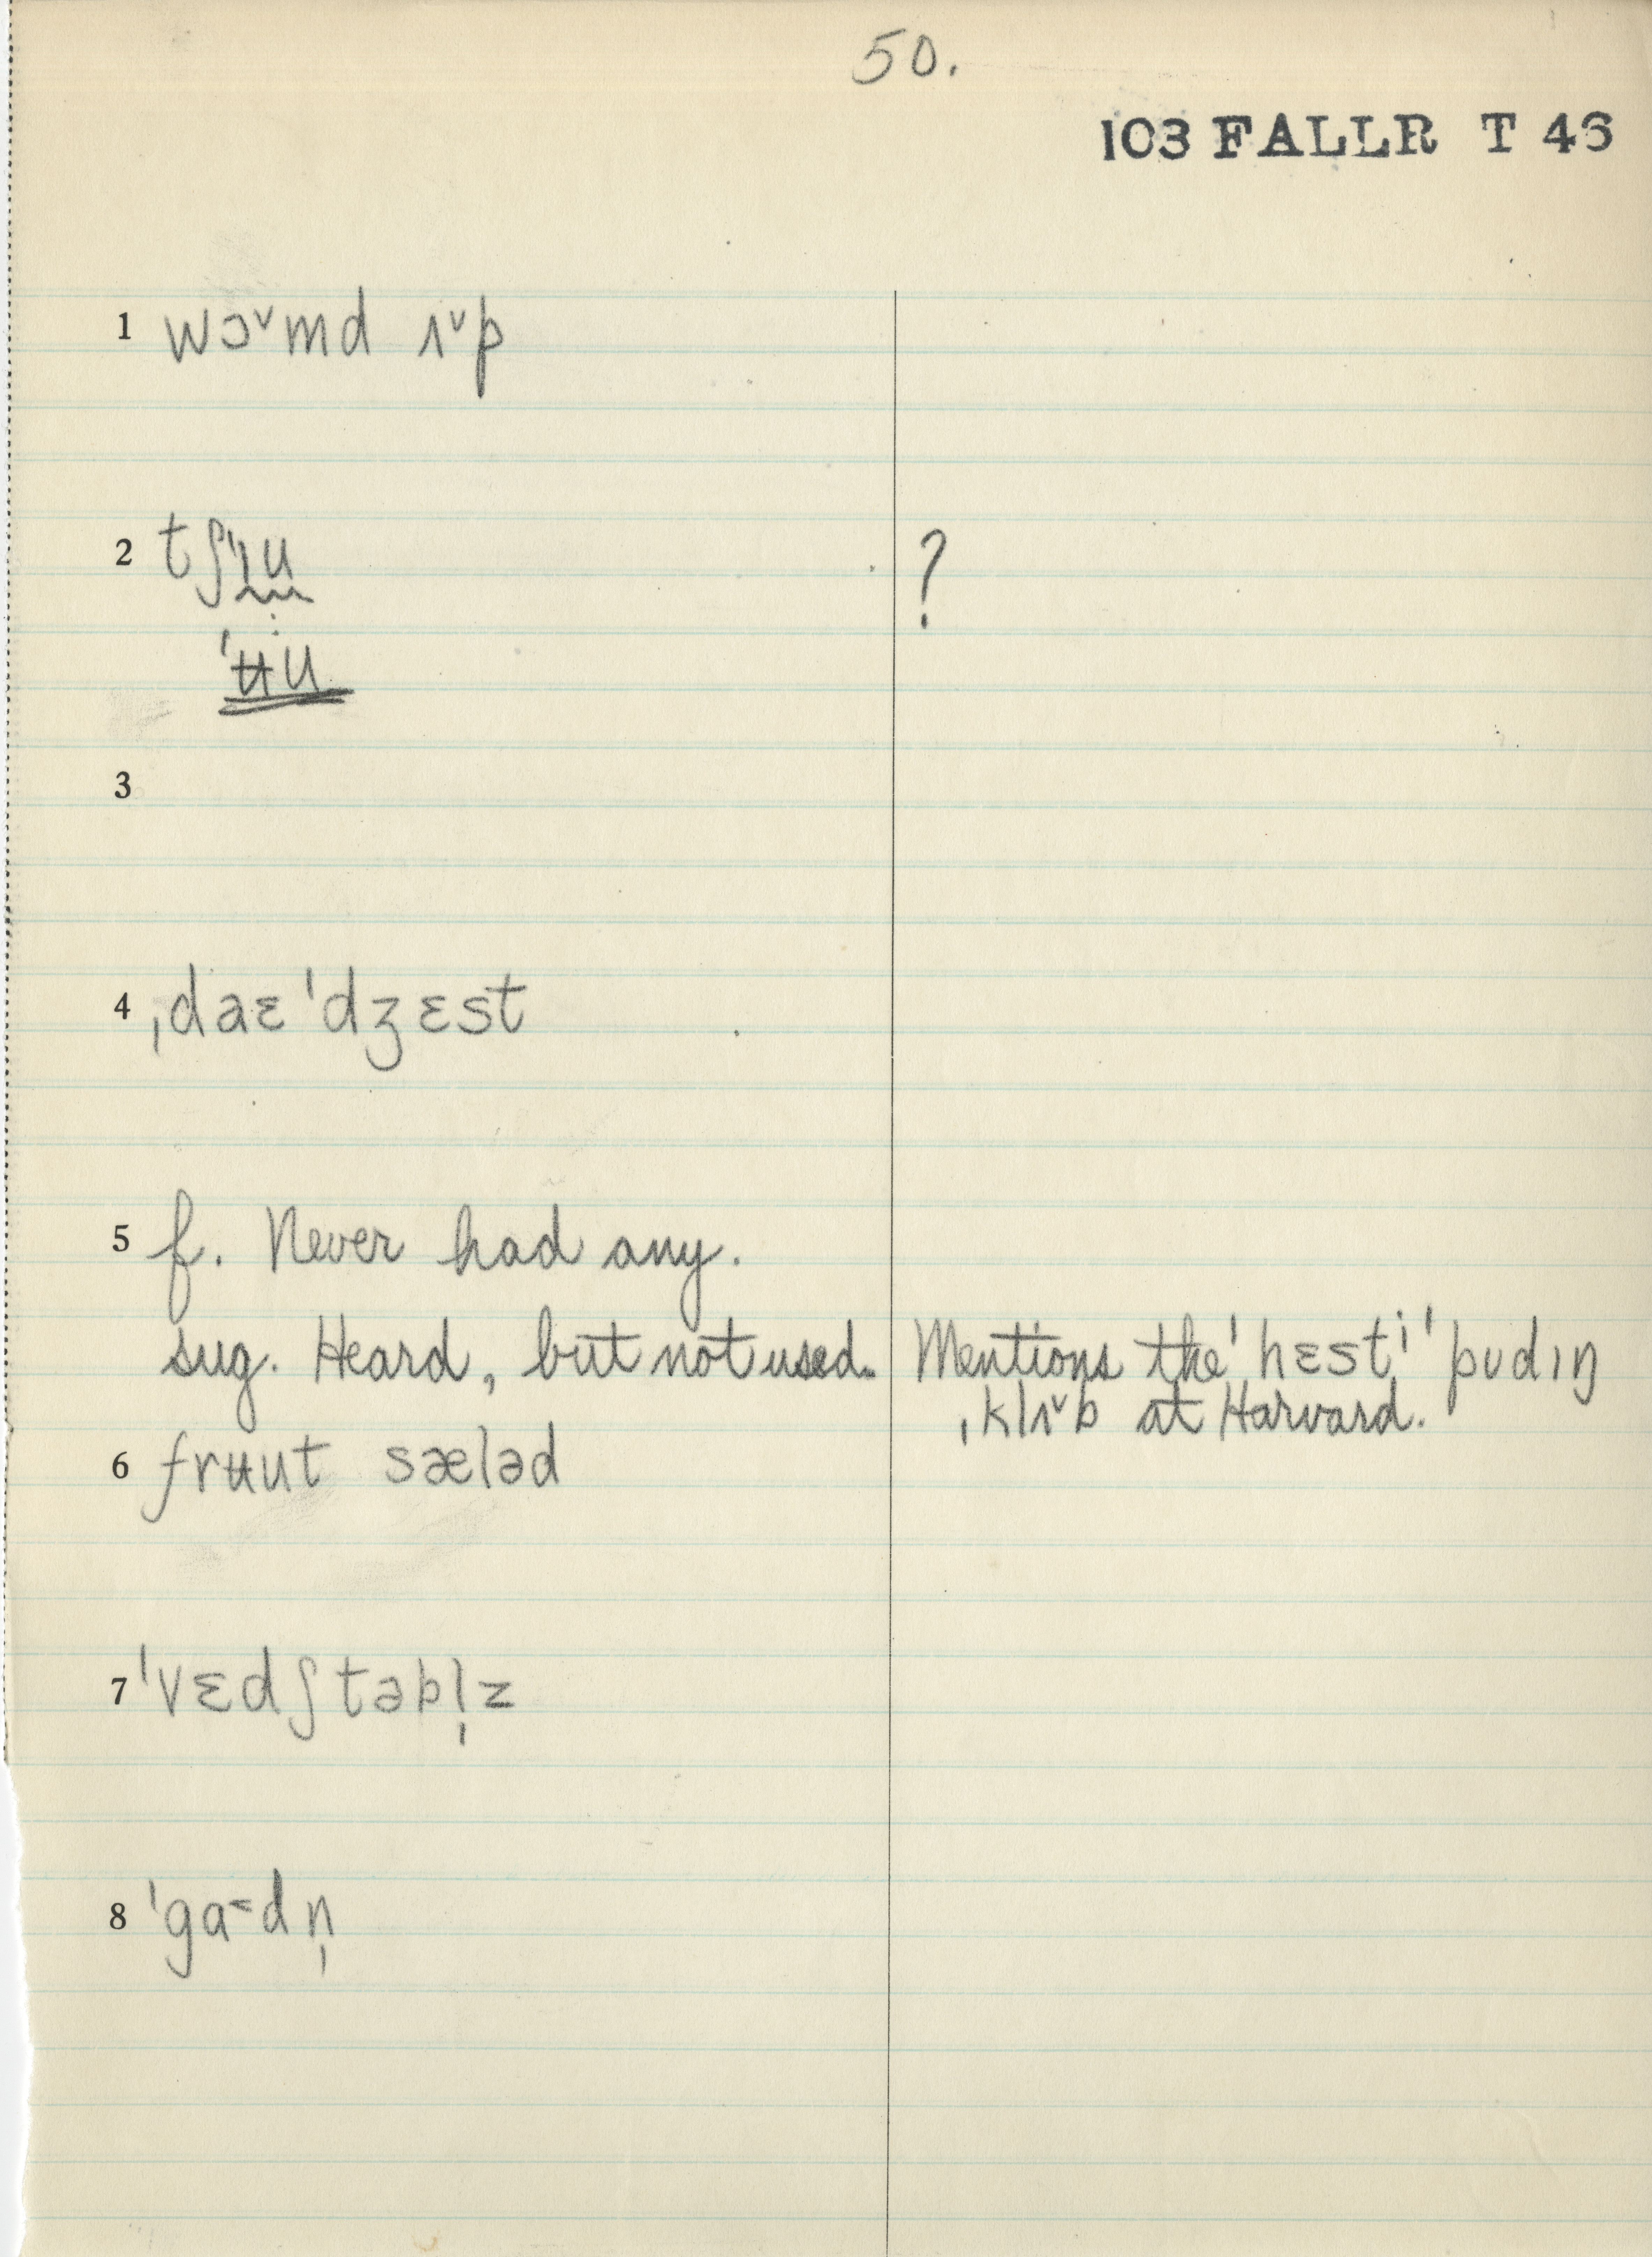 50.
103 FALLR T 46
1 wɔ˅md ʌ˅p
2 tʃ'ɪu ?
'ʉu
3
4 ˌdaɛ'dʒɛst
5 f. Never had any.
sug. Heard, but not used. Mentions the 'hɛstɨ 'pʊdɪŋ
ˌklʌ˅b at Harvard.
6 frʉut sæləd
7 'vɛdʃtəbl̩z
8 'ga˂dn̩